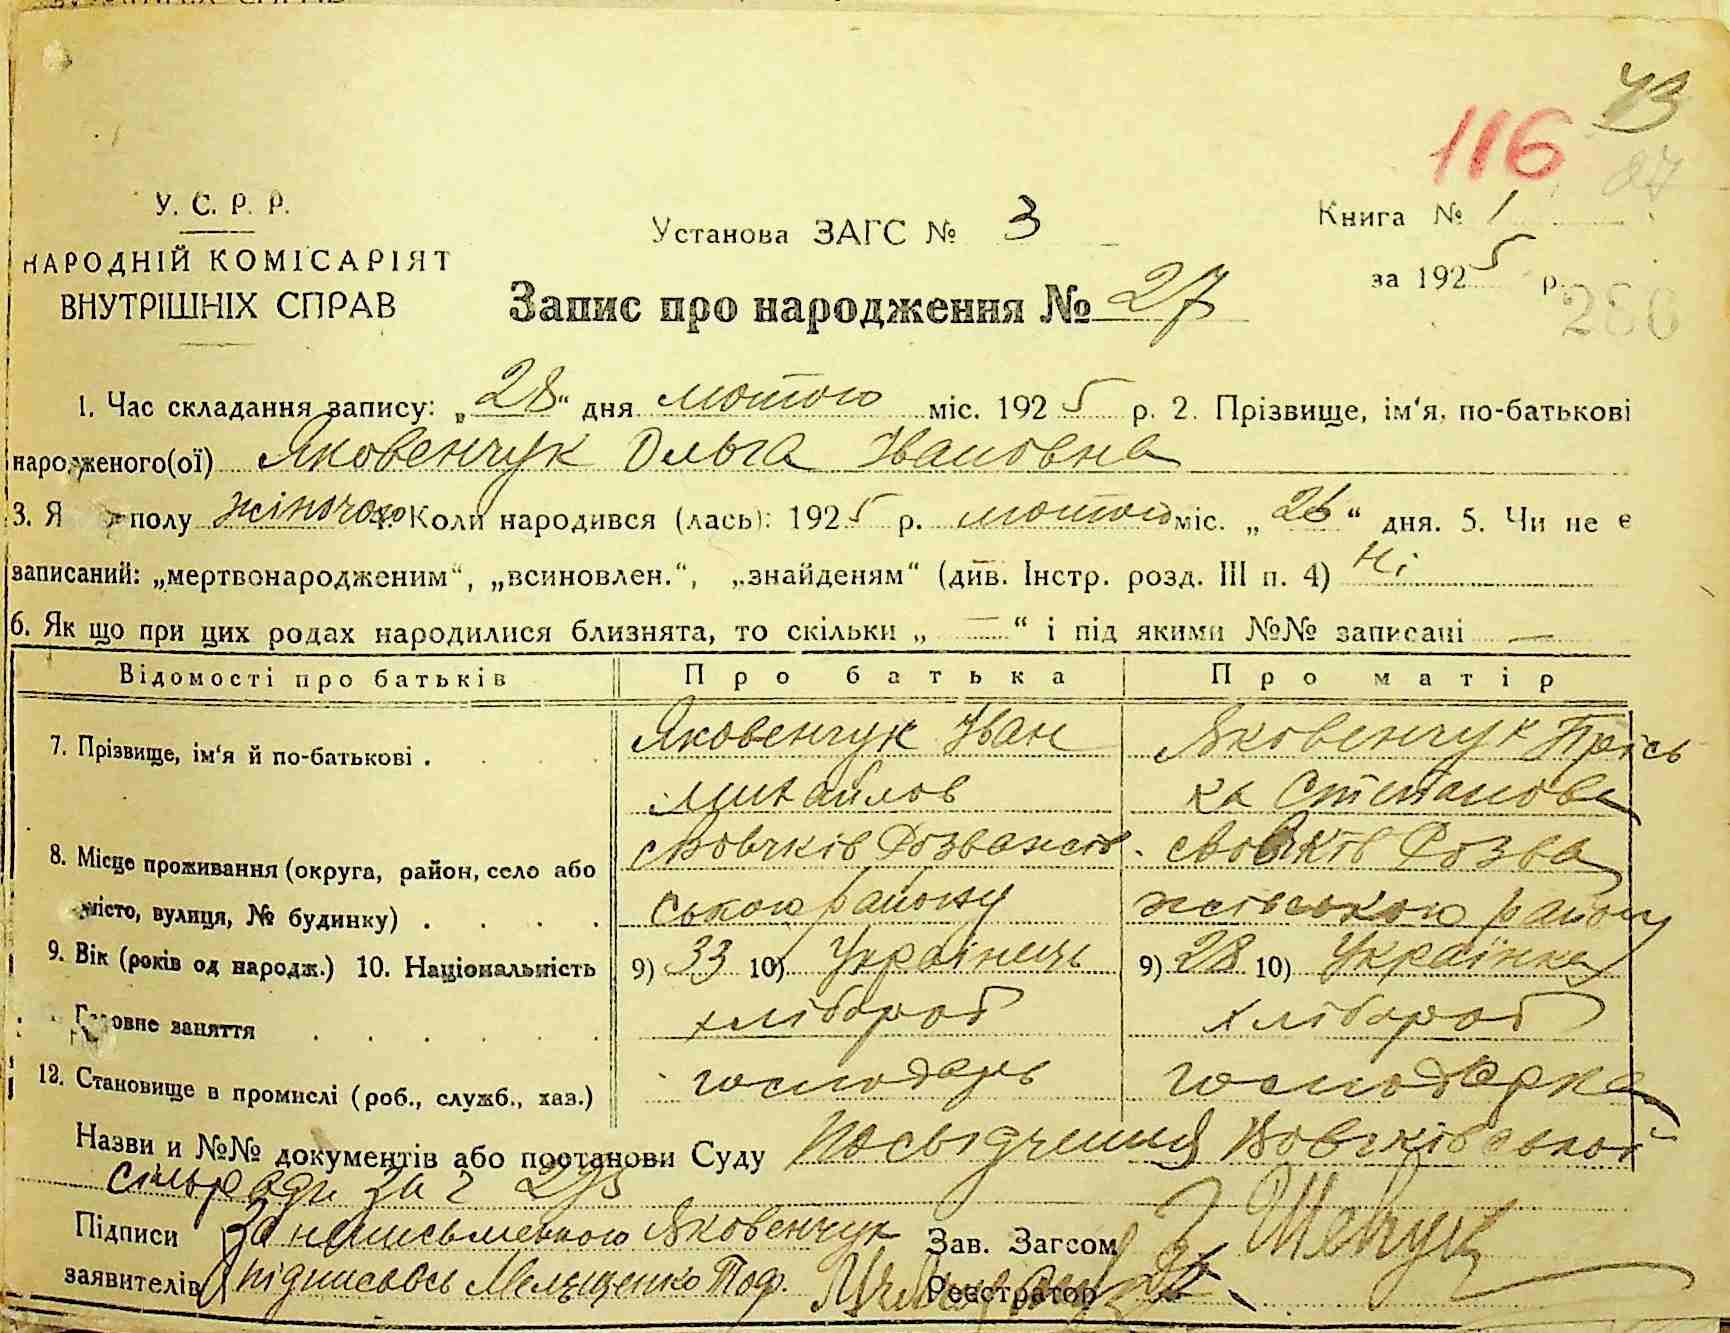 43
116
27
У. С. Р. Р.
НАРОДНІЙ КОМІСАРІЯТ
ВНУТРІШНІХ СПРАВ
Установа ЗАГС № 3
Книга № 1
за 1925 р.
286
Запис про народження № 27
1. Час складання запису: „28“ дня лютого міс. 1925 р. 2. Прізвище, ім‘я, по-батькові
народженого(ої) Яковенчук Ольга Івановна
3. Я полу жіночого 4. Коли народився (лась): 1925 р. лютого міс. „26“ дня. 5. Чи не є
записаний: „мертвонародженим“, „всиновлен.“, „знайденям“ (див. Інстр. розд. III п. 4) Ні
6. Як що при цих родах народилися близнята, то скільки „—“ і під якими №№ записані —
Відомості про батьків Про батька Про матір
7. Прізвище, ім‘я й по-батькові . Яковенчук Іван Яковенчук Прісь
Михайлов ка Степанова
8. Місце проживання (округа, район, село або Вовчків Розважів Вовчків Розва
місто, вулиця, № будинку) . ського району жівського району
9. Вік (років од народж.) 10. Національність 9) 33 10) Українець 9) 28 10) Українка
Головне заняття хлібороб хлібороб
12. Становище в промислі (роб., служб., хаз.) господарь господарка
Назви и №№ документів або постанови Суду Посвідчення Вовчківської
сільради за ч 293
Підписи За неписьменного Яковенчук Зав. Загсом Шевчук
заявителів підписавсь Реєстратор